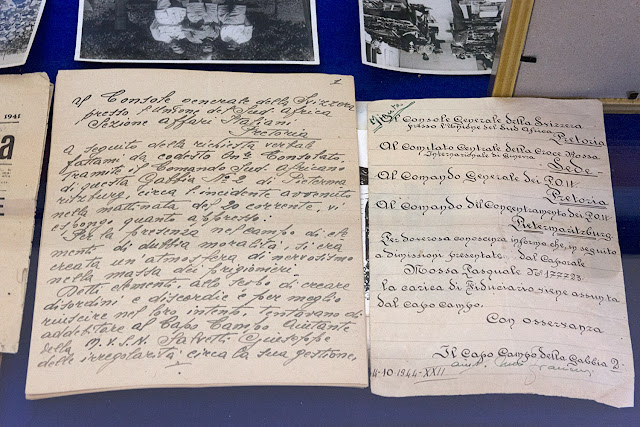 1941
1
Al Console Generale della Svizzera
presso l'Unione del Sud Africa
Sezione Affari Italiani
Pretoria
A seguito della richiesta verbale
fattami da codesto On. Consolato,
tramite il Comando Sud Africano
di questa Gabbia N° 2 di Pieterma
ritzburg, circa l'incidente avvenuto
nella mattinata del 20 corrente, vi
espongo quanto appresso:
Per la presenza nel campo di ele
menti di dubbia moralità, si era
creata un'atmosfera di nervosismo
nella massa dei prigionieri.
Detti elementi, allo scopo di creare
disordini e discordie e per meglio
riuscire nel loro intento, tentavano di
addebitare al Capo Campo Aiutante
della M.V.S.N. Giuseppe
delle irregolarità circa la sua gestione.
Al Console Generale della Svizzera
presso l'Unione del Sud Africa
Pretoria
Al Comitato Centrale della Croce Rossa
Internazionale di Ginevra
Sede
Al Comando Generale dei P.O.W.
Pretoria
Al Comando di Concentramento dei P.O.W.
Pietermaritzburg
Per doverosa conoscenza informo che, in seguito
a dimissioni presentate dal Caporale
Mossa Pasquale N° 177723
la carica di Fiduciario viene assunta
dal capo campo.
Con osservanza
Il Capo Campo della Gabbia 2
4-10-1944-XXII